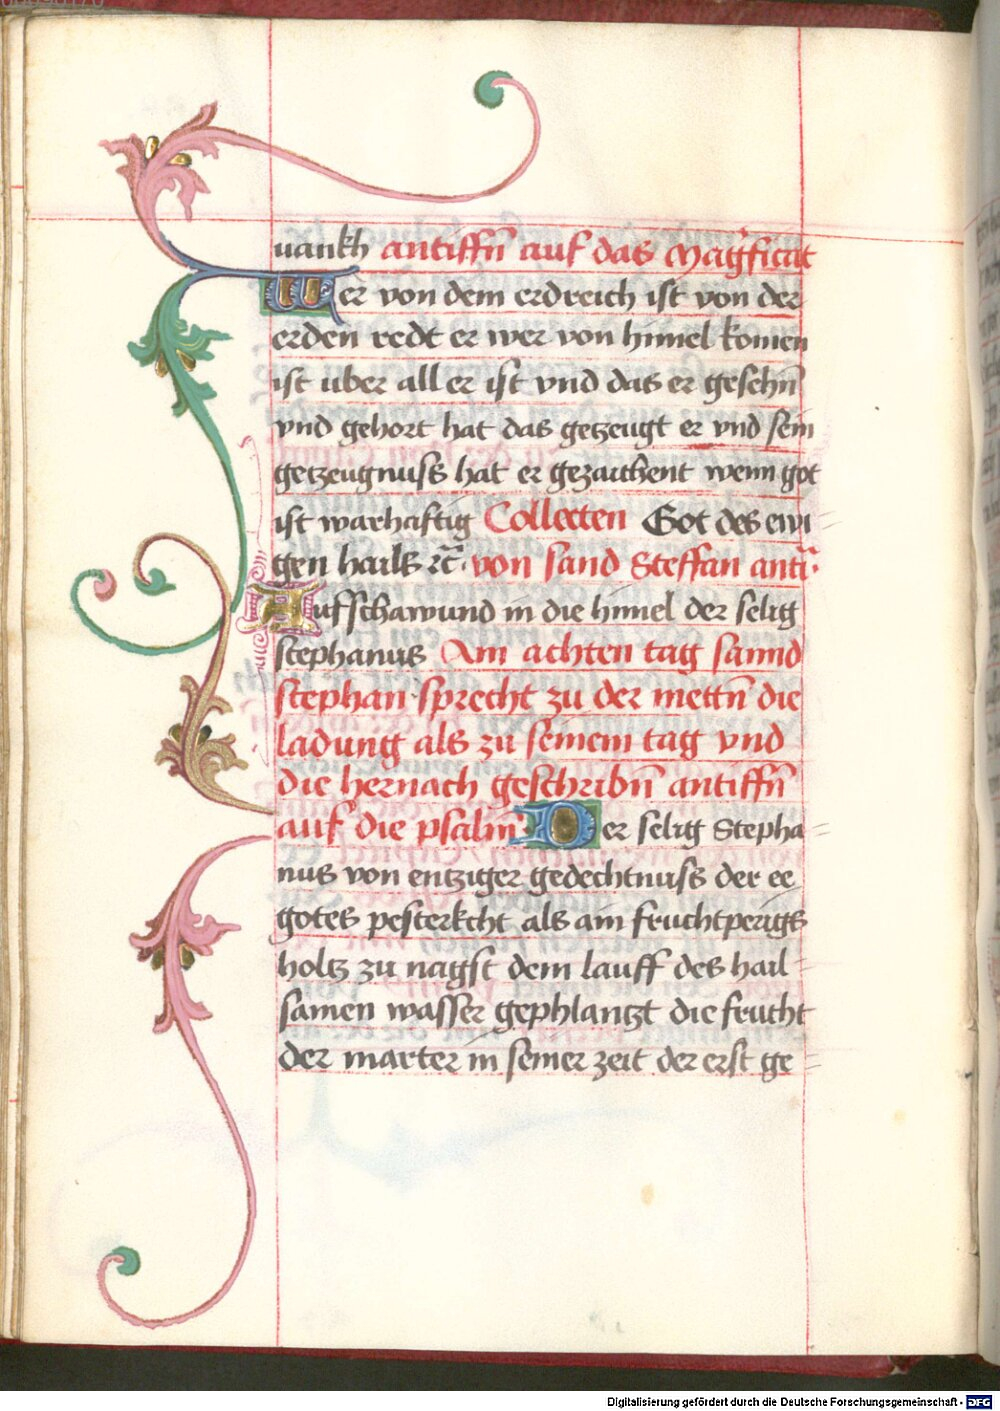 uankh antiffn̄ auf das Mag̃ficat
Wer von dem erdreich ist von der
erden redt er wer von himel komen
ist uber all er ist vnd das er gesehn̄
vnd gehort hat das getzeugt er vnd sein
getzeugnuss hat er gezaichent wenn got
ist warhaftig Collecten Got des ewi
gen hails ꝛc̄. von sand Steffan anti.
Aufschawund in die himel der selig
stephanus Am achten tag sannd
stephan sprecht zu der mettn̄ die
ladung als zu seinem tag vnd
die hernach geschribn̄ antiffn̄
auf die psalm̄ Der selig Stepha
nus von entziger gedechtnuss der ee
gotes pesterkcht als ain fruchtperigs
holtz zu nagst dem lauff des hail
samen wasser gephlantzt die frucht
der marter in seiner zeit der erst ge
Digitalisierung gefördert durch die Deutsche Forschungsgemeinschaft - DFG